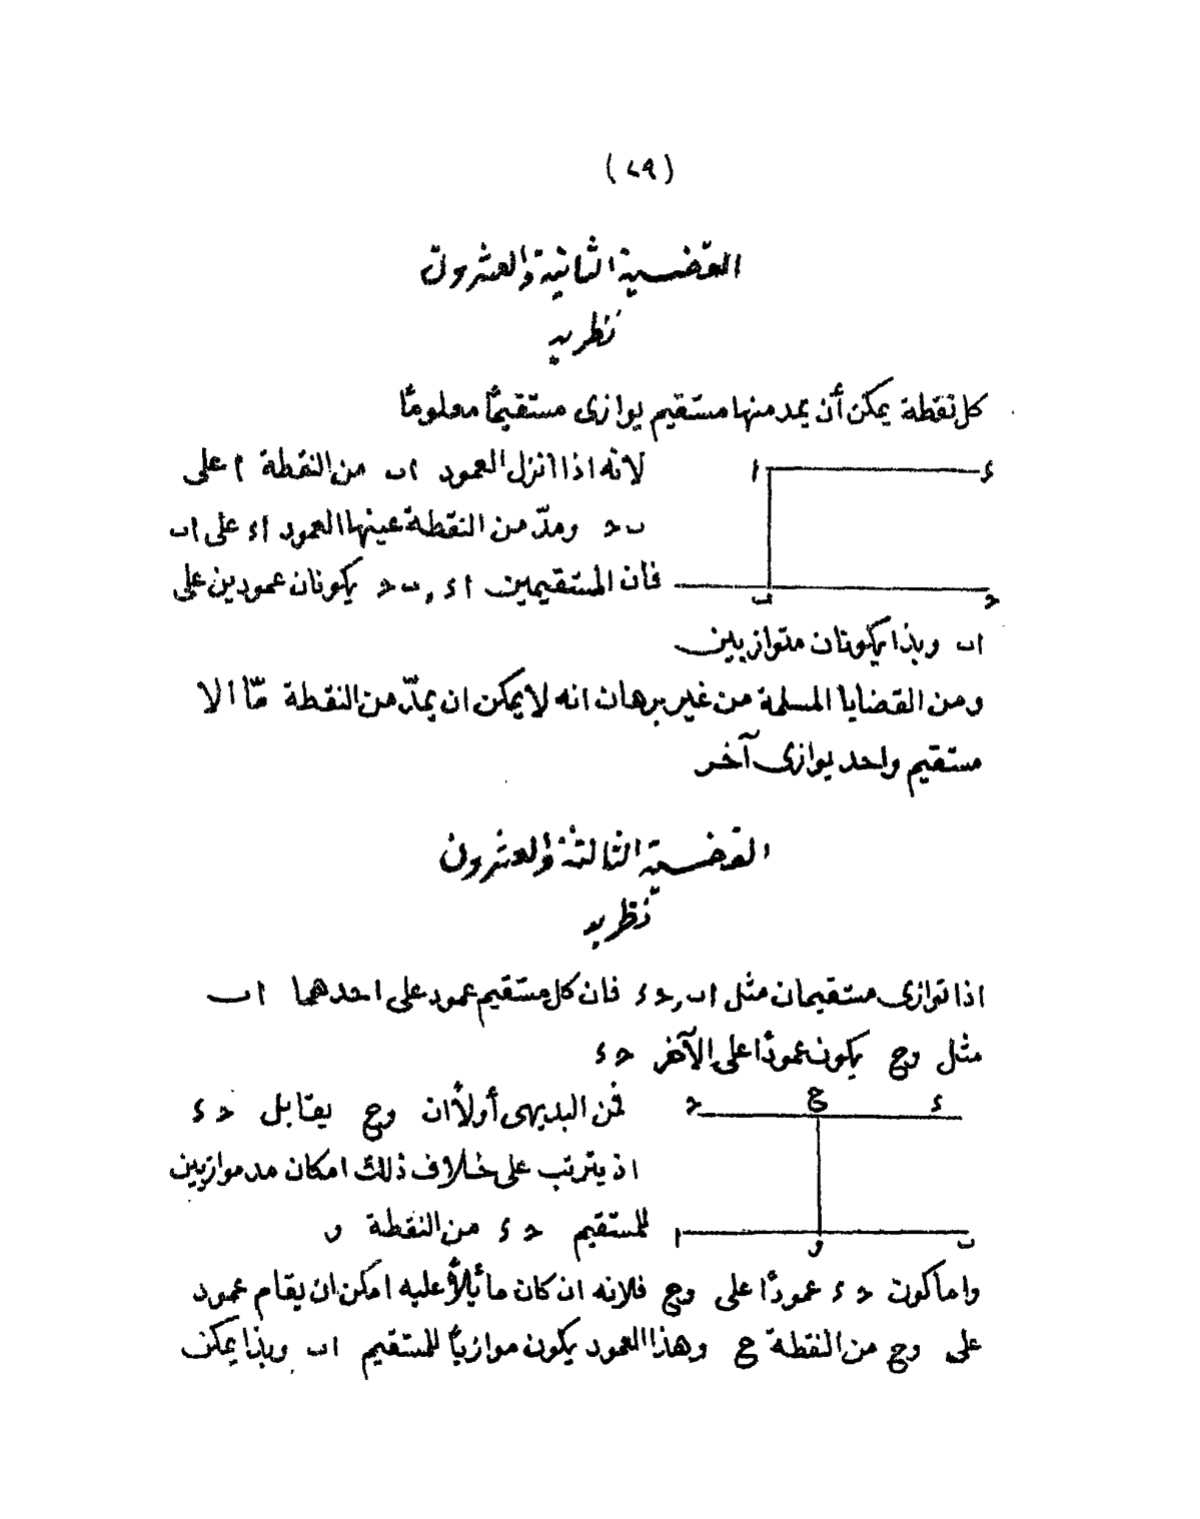 (٢٩)
القضية الثانية والعشرون
نظرية
كل نقطة يمكن أن يمد منها مستقيم يوازى مستقيمًا معلومًا
لانه اذا انزل العمود اب من النقطة ا على
ا
ء
ب حـ ومدّ من النقطة عينها العمود اء على اب
فان المستقيمين اء , ب حـ يكونان عمودين على
ب
حـ
اب وبذا يكونان متوازيين
ومن القضايا المسلمة من غير برهان انه لا يمكن ان يمدّ من النقطة مّا الا
مستقيم واحد يوازى آخر
القضية الثالثة والعشرون
نظرية
اذا توازى مستقيمان مثل اب , حـ ء فان كل مستقيم عمود على احدهما اب
مثل وع يكون عمودًا على الآخر حـ ء
فمن البديهى أولاً ان وع يقابل حـ ء
حـ
ع
ء
اذ يترتب على خلاف ذلك امكان مد موازيين
للمستقيم حـ ء من النقطة و
ا
و
ب
واما كون حـ ء عمودًا على وع فلانه ان كان مائلاً عليه امكن ان يقام عمود
على وع من النقطة ع وهذا العمود يكون موازيًا للمستقيم اب وبذا يمكن